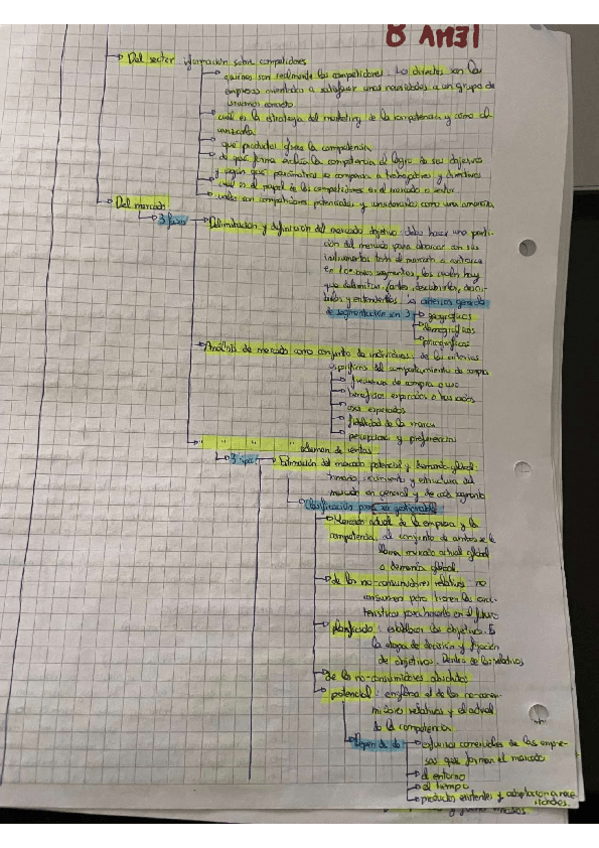 TEMA 8
Del sector: información sobre competidores
quienes son realmente los competidores: Los directos son las
empresas orientadas a satisfacer unas necesidades a un grupo de
usuarios concreto.
cuál es la estrategia del marketing de la competencia y como
que productos ofrece la competencia
de que forma evalúa la competencia el logro de sus objetivos
y según que parámetros se compensa a trabajadores y directivos
cual es el papel de los competidores en el mercado o sector
cuales son competidores potenciales y considerarlos como una amenaza
Del mercado
3 fases
Delimitación y definición del mercado objetivo: debe hacer una parti-
ción del mercado para abarcar con sus
instrumentos todo el mercado o centrarse
en 1 o varios segmentos, los cuales hay
que delimitar, descubrirlos,
y entenderlos. Los criterios generales
de segmentación son 3
geográficos
demográficos
psicográficos
Análisis de mercado como conjunto de individuos: de los criterios
específicos del comportamiento de compra
frecuencia de compra o uso
beneficios esperados o buscados
uso esperados
fidelidad de la marca
percepciones y preferencias
" " " "
volumen de ventas
3
Estimación del mercado potencial y demanda global:
tamaño, crecimiento y estructura del
mercado en general y de cada segmento
Clasificación
Mercado actual de la empresa y la
competencia, el conjunto de ambos se le
llama mercado actual global
o demanda global.
de los no-consumidores relativos no
consumen pero tienen las carac-
terísticas para hacerlo en el futuro
planificado: establecer los objetivos. Es
la etapa de decisión y fijación
de objetivos. Dentro de los relativos
de los no-consumidores absolutos
potencial: engloba el de los no-consu-
midores relativos y el actual
de la competencia
Depende de
esfuerzos comerciales de las empre-
sas que forman el mercado
el entorno
el tiempo
productos existentes y adaptación a nece-
sidades.